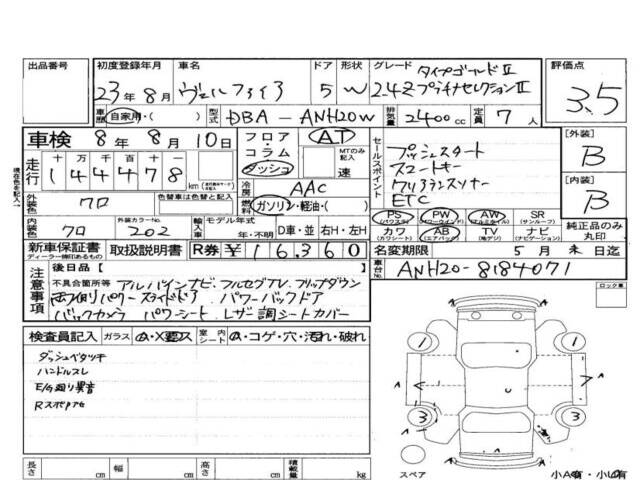 出品番号 初度登録年月 車名 ドア 形状 グレード 評価点
23年8月 ヴェルファイア 5 W タイプゴールドⅡ
24Z プラチナセレクションⅡ 3.5
車歴 自家用・( ) 型式 DBA-ANH20W 排気量 2400cc 定員 7人
車検 8年 8月 10日 フロア・コラム・ダッシュ AT MTのみ記入 速 セールスポイント プッシュスタート [外装] B
現在色を記入→ 走行 十万千百十一 144478 km スマートキー
クリアランスソナー [内装] B
ETC
外装色 クロ 色替車は色替と記入 冷房 AAC
燃料 ガソリン・軽油・( )
PS (パワステ) PW (パワーウインド) AW (アルミホイル) SR (サンルーフ)
内装色 クロ 外装カラーNo. 202 輸入車 モデル年式 年・不明 D車・並 右H・左H カワ (カワシート) AB (エアバッグ) TV (地デジ) ナビ (ナビゲーション) 純正品のみ丸印
新車保証書 ディーラー捺印あるもの 取扱説明書 R券 ¥16,360 名変期限 5月末日迄
注意事項 後日品 [ ] 車台No. ANH20-8184071
不具合箇所等 アルパインナビ フルセグTV フリップダウン
両側パワースライドドア パワーバックドア ロック車
バックカメラ パワーシート レザー調シートカバー
検査員記入 ガラス A・X要ス 室内シート A・コゲ・穴・汚れ・破れ
ダッシュベタツキ
ハンドルスレ
E/G廻り異音
1 1
A A
3 3
長さ cm 幅 cm 高さ cm 積載量 kg
スペア 小A有・小U有